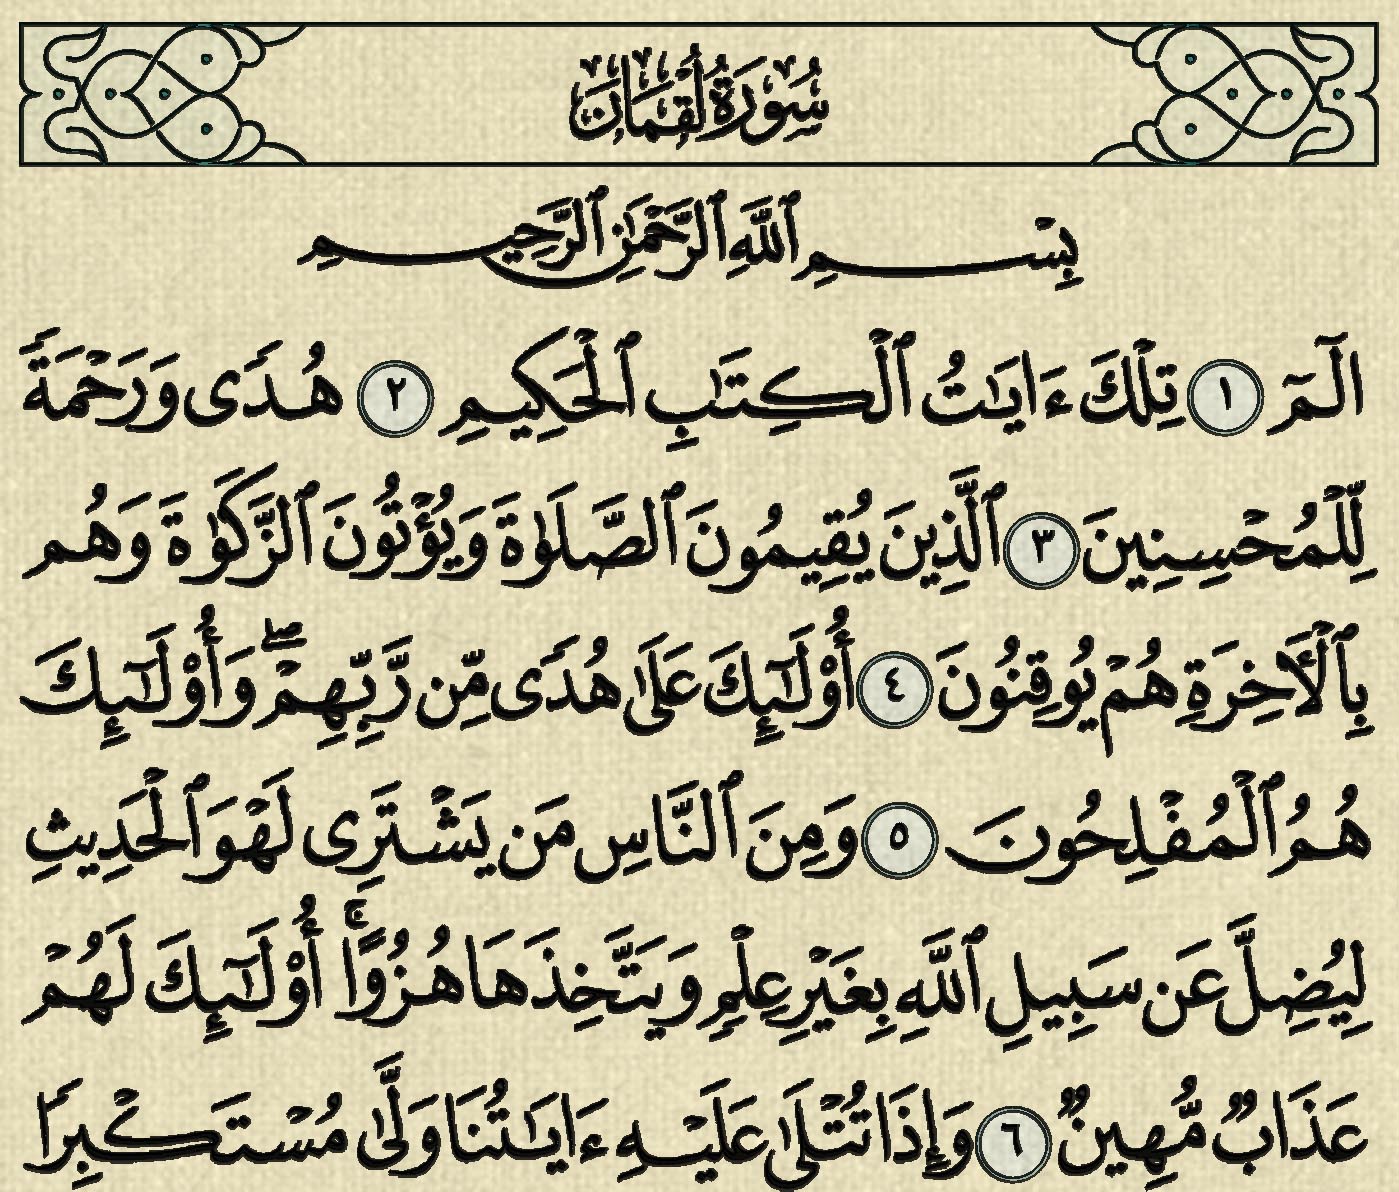 سُورَةُ لُقۡمَانَ
بِسۡمِ ٱللَّهِ ٱلرَّحۡمَٰنِ ٱلرَّحِيمِ
الٓمٓ ١ تِلۡكَ ءَايَٰتُ ٱلۡكِتَٰبِ ٱلۡحَكِيمِ ٢ هُدٗى وَرَحۡمَةٗ
لِّلۡمُحۡسِنِينَ ٣ ٱلَّذِينَ يُقِيمُونَ ٱلصَّلَوٰةَ وَيُؤۡتُونَ ٱلزَّكَوٰةَ وَهُم
بِٱلۡأٓخِرَةِ هُمۡ يُوقِنُونَ ٤ أُوْلَٰٓئِكَ عَلَىٰ هُدٗى مِّن رَّبِّهِمۡۖ وَأُوْلَٰٓئِكَ
هُمُ ٱلۡمُفۡلِحُونَ ٥ وَمِنَ ٱلنَّاسِ مَن يَشۡتَرِي لَهۡوَ ٱلۡحَدِيثِ
لِيُضِلَّ عَن سَبِيلِ ٱللَّهِ بِغَيۡرِ عِلۡمٖ وَيَتَّخِذَهَا هُزُوًاۚ أُوْلَٰٓئِكَ لَهُمۡ
عَذَابٞ مُّهِينٞ ٦ وَإِذَا تُتۡلَىٰ عَلَيۡهِ ءَايَٰتُنَا وَلَّىٰ مُسۡتَكۡبِرٗا